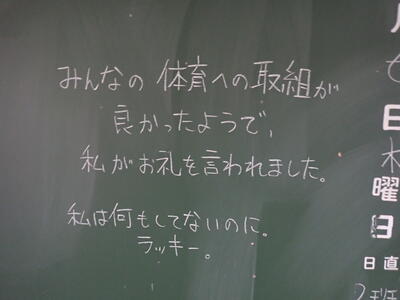 みんなの体育への取組が
良かったようで、
私がお礼を言われました。
私は何もしてないのに。
ラッキー。
日
曜
日
日直
2班